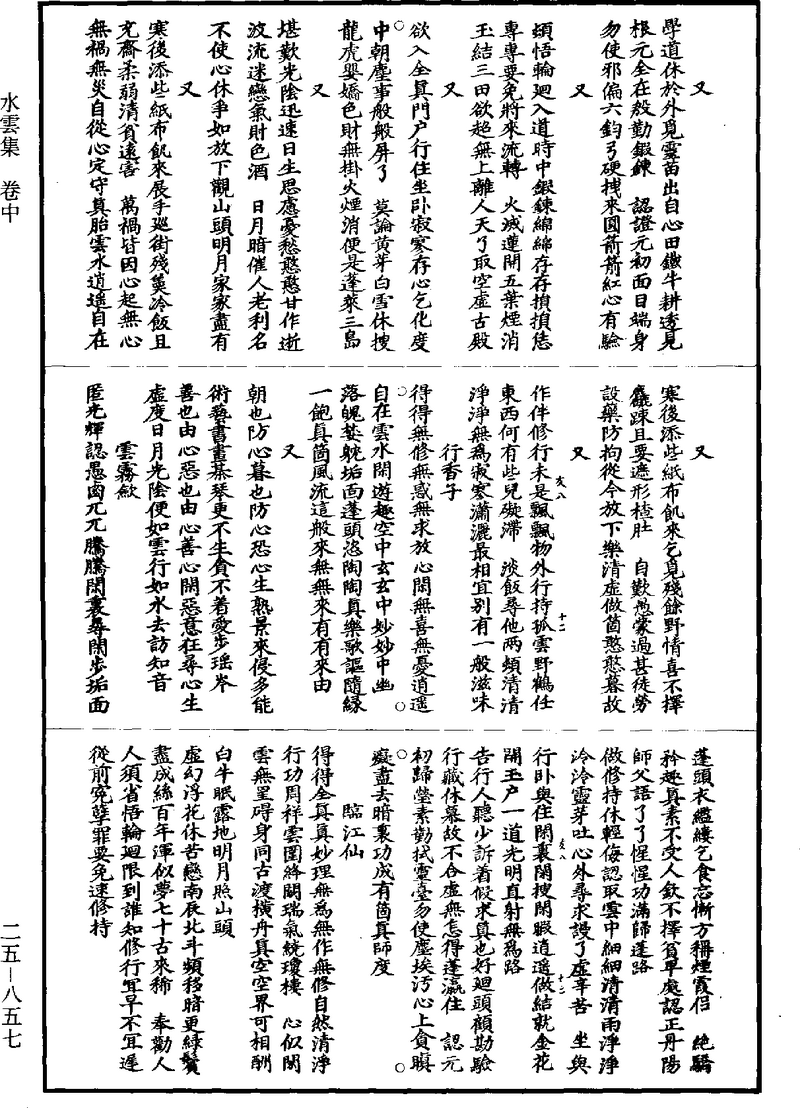 水雲集 卷中
又
學道休於外覓靈苗出自心田鐵牛耕透見
根元全在殷勤鍛鍊 認證元初面目端身
勿使邪偏六鈞弓硬拽來圓箭箭紅心有驗
又
頓悟輪迴入道時中鍛鍊綿綿存存損損恁
專專要免將來流轉 火滅蓮開五葉煙消
玉結三田欲超無上離人天了取空虛古殿
又
欲入全真門户行住坐卧寂寞存心乞化度
中朝塵事般般屏了 莫論黄芽白雪休搜
龍虎嬰嬌色財無掛火煙消便是蓬萊三島
又
堪歎光陰迅速日生思慮憂愁憨憨甘作逝
波流迷戀氣財色酒 日月暗催人老利名
不使心休爭如放下觀山頭明月家家盡有
又
寒後添些紙布飢來展手廵街殘羹冷飯且
充齋柔弱清貧遠害 萬禍皆因心起無心
無禍無災自從心定守真胎雲水逍遥自在
又
寒後添些紙布飢來乞覓殘餘野情喜不擇
麤踈且要遮形楂肚 自歎愚蒙過甚徒勞
設藥防拘從今放下樂清虛做箇憨憨暮故
又
作伴修行未是飄飄物外行持孤雲野鶴任
東西何有些兒礙滯 淡飯尋他兩頓清清
淨淨無爲寂寞瀟灑最相宜别有一般滋味
行香子
得得無修無惑無求放心閑無喜無憂逍遥
自在雲水閑遊趣空中玄玄中妙妙中幽
落魄婪躭垢面蓬頭恣陶陶真樂歌謳隨緣
一飽真箇風流這般來無無來有有來由
又
朝也防心暮也防心恐心生熟景來侵多能
術藝書畫棊琴更不生貪不着愛步瑶岑
善也由心惡也由心善心開惡意狂尋心生
虛度日月光陰便如雲行如水去訪知音
雲霧歛
匿光輝認愚鹵兀兀騰騰閑裏尋閑步垢面
蓬頭衣繿縷乞食忘慚方稱煙霞侣 絶驕
矜趣真素不受人欽不擇貧卑處認正丹陽
師父語了了惺惺功滿歸蓬路
做修持休輕侮認取雲中細細清清雨淨淨
泠泠靈芽吐心外尋求謾了虛辛苦 坐與
行卧與住閑裏閑搜閑暇逍遥做結就金花
開玉户一道光明直射無爲路
告行人聽少訴着假求真也好迴頭顧勘驗
行藏休慕故不合虛無怎得蓬瀛住 認元
初歸瑩素勤拭靈臺勿使塵埃汚心上貪瞋
癡盡去暗裏功成有箇真師度
臨江仙
得得全真真妙理無爲無作無修自然清淨
行功周祥雲圍絡闕瑞氣繞瓊樓 心似閑
雲無罣碍身同古渡横舟真空空界可相酬
白牛眠露地明月照山頭
虛幻浮花休苦戀南辰北斗頻移暗更綠鬢
盡成絲百年渾似夢七十古來稀 奉勸人
人須省悟輪迴限到誰知修行宜早不宜遲
從前寃孽罪要免速修持
二五—八五七